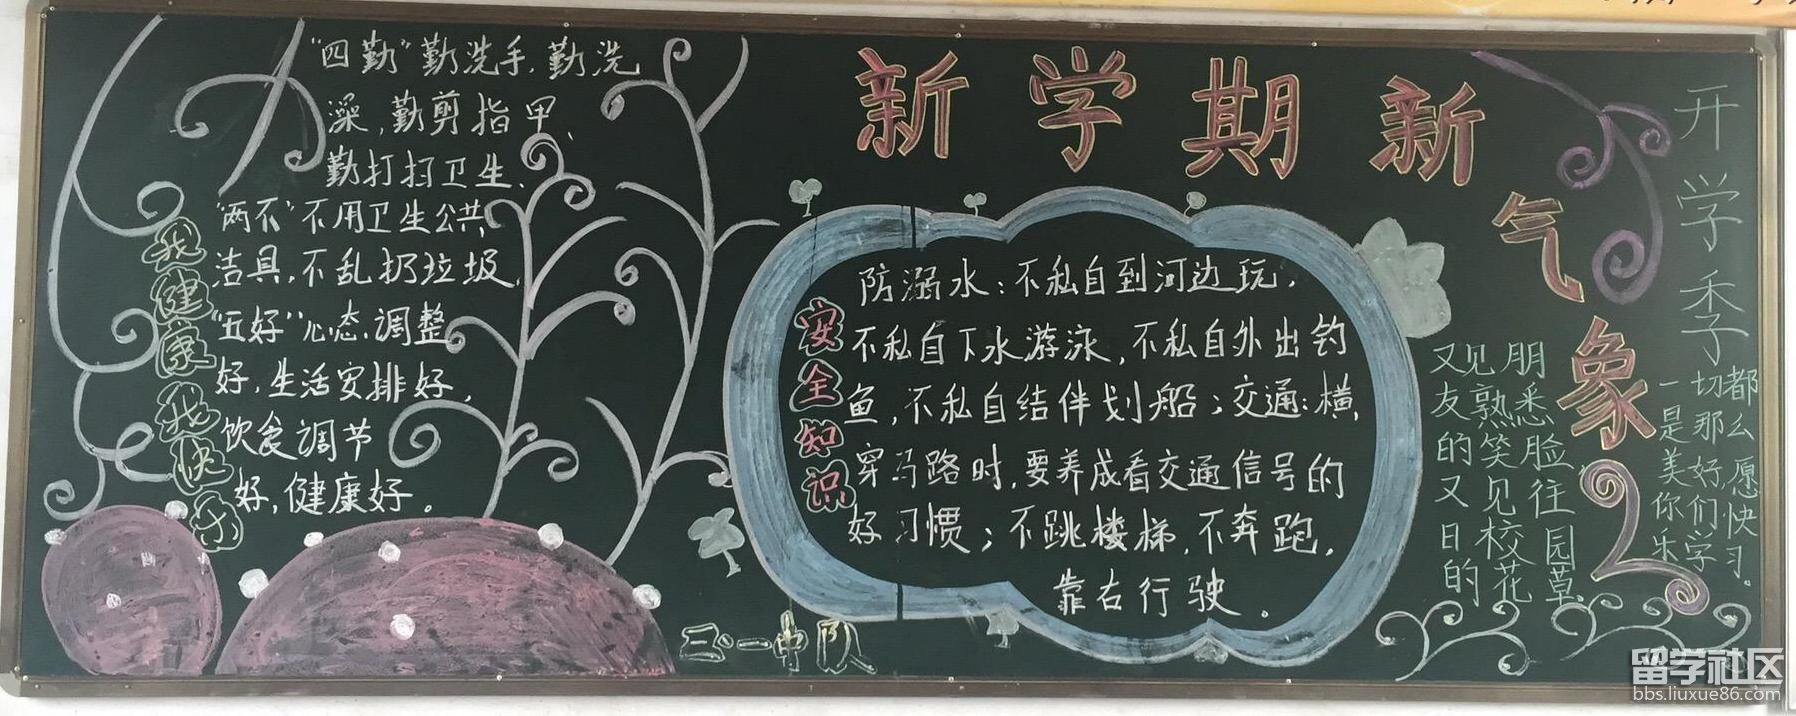 新学期新气象
"四勤"勤洗手、勤洗
澡,勤剪指甲、
勤打扫卫生、
"两不"不用卫生公共
洁具,不乱扔垃圾,
"五好"心态、调整
好,生活安排好,
饮食调节
好,健康好。
我健康我快乐
安全知识
防溺水:不私自到河边玩,
不私自下水游泳,不私自外出钓
鱼,不私自结伴划船;交通:横
穿马路时,要养成看交通信号的
好习惯;不跳楼梯,不奔跑,
靠右行驶。
三·一中队
开学季
又见朋
友熟悉
的笑脸
又见往
日校园
的花草
一切都
是那么
美好愿
你们快
乐学习。
留学社区
bbs.liuxue86.com